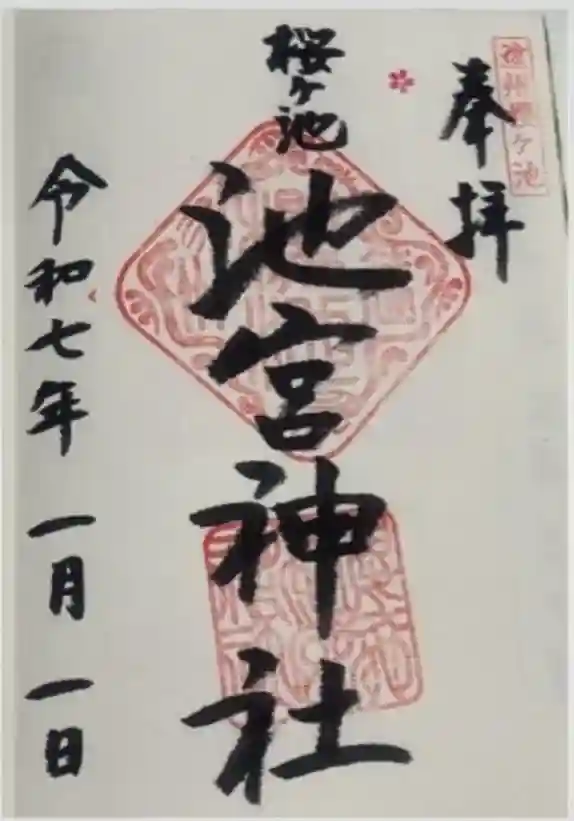 遠州桜ヶ池
奉拝
桜ヶ池
池宮神社
令和七年 一月 一日